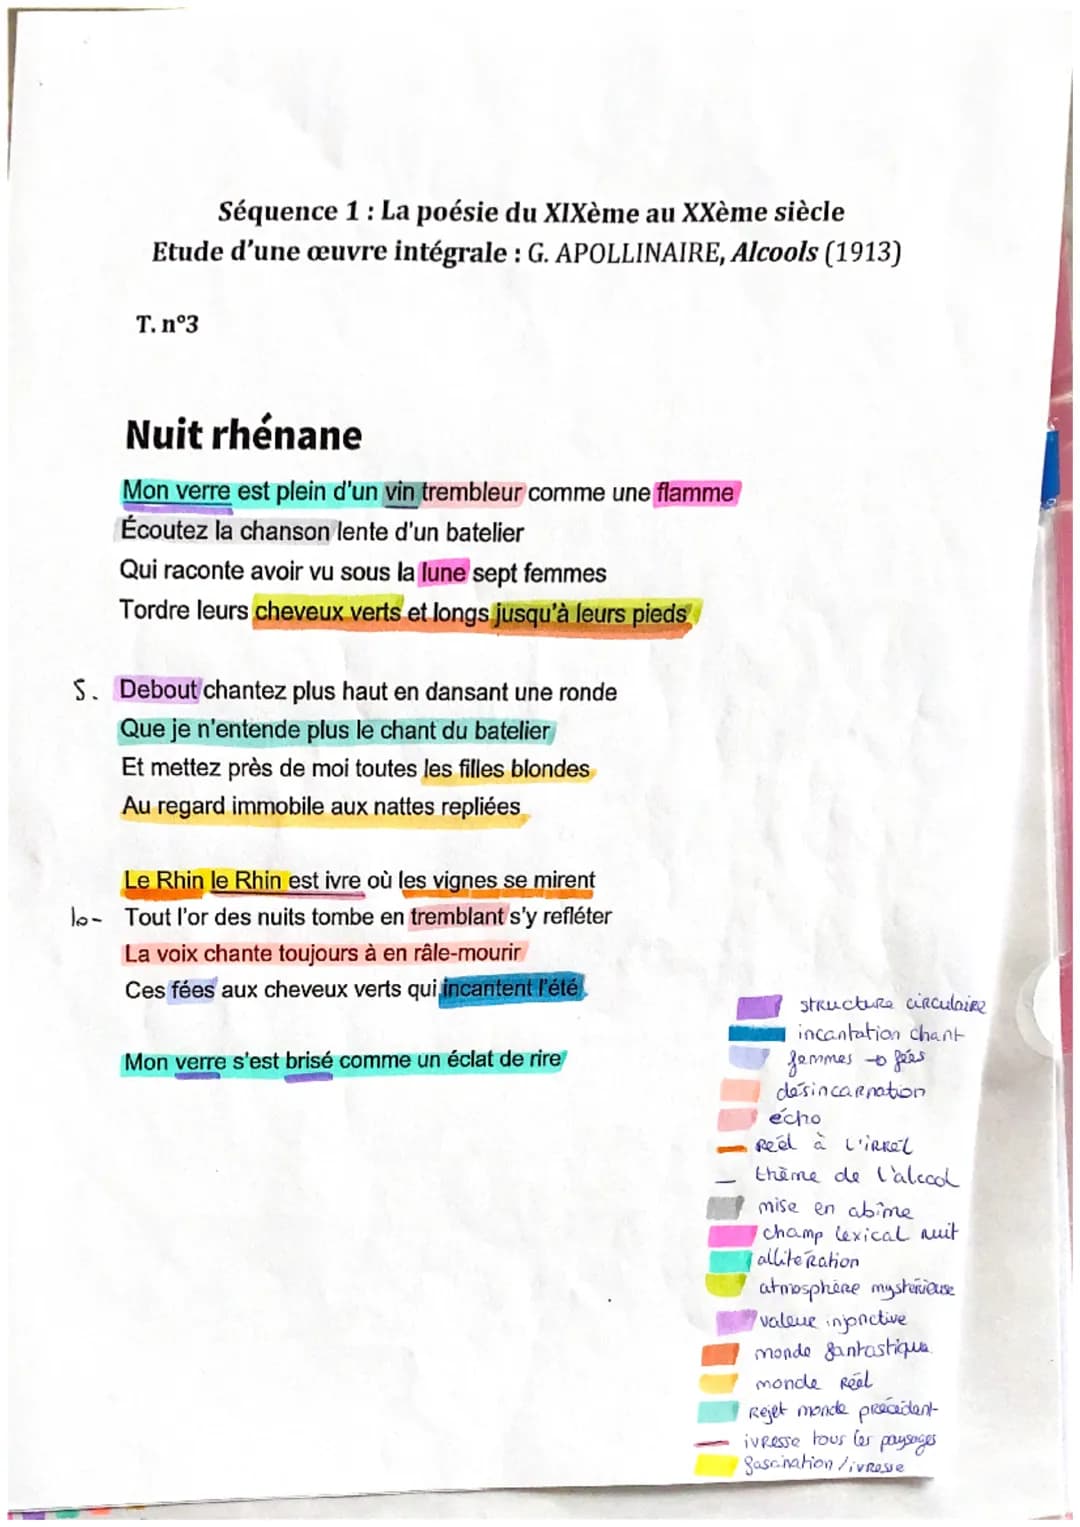 Séquence 1 : La poésie du XIXème au XXème siècle
Etude d'une œuvre intégrale : G. APOLLINAIRE, Alcools (1913)
T. n°3
Nuit rhénane
Mon verre est plein d'un vin trembleur comme une flamme
Écoutez la chanson lente d'un batelier
Qui raconte avoir vu sous la lune sept femmes
Tordre leurs cheveux verts et longs jusqu'à leurs pieds
5. Debout chantez plus haut en dansant une ronde
Que je n'entende plus le chant du batelier
Et mettez près de moi toutes les filles blondes
Au regard immobile aux nattes repliées
Le Rhin le Rhin est ivre où les vignes se mirent
10- Tout l'or des nuits tombe en tremblant s'y refléter
La voix chante toujours à en râle-mourir
Ces fées aux cheveux verts qui incantent l'été
Mon verre s'est brisé comme un éclat de rire
structure circulaire
incantation chant
femmes → fées
désincarnation
écho
Réel à l'irréel
thème de l'alcool
mise en abîme
champ lexical nuit
allitération
atmosphère mystérieuse
valeur injonctive
monde fantastique
monde Réel
Rejet monde précédent
ivresse tous les paysages
fascination / ivresse